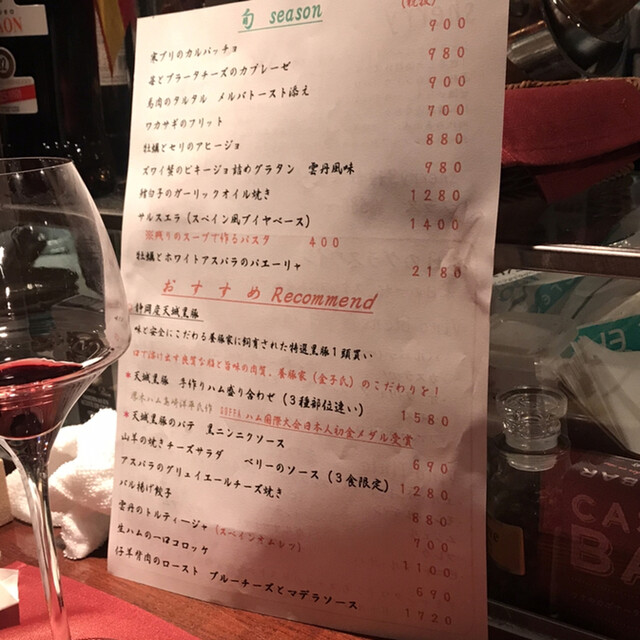 旬 season
(税抜)
寒ブリのカルパッチョ 900
苺とブラータチーズのカプレーゼ 980
馬肉のタルタル メルバトースト添え 900
ワカサギのフリット 700
牡蠣とセリのアヒージョ 880
ズワイ蟹のピキージョ詰めグラタン 雲丹風味 980
鱈白子のガーリックオイル焼き 1280
サルスエラ(スペイン風ブイヤベース) 1400
※残りのスープで作るパスタ 400
牡蠣とホワイトアスパラのパエーリャ 2180
おすすめ Recommend
静岡産天城黒豚
味と安全にこだわる養豚家に飼育された特選黒豚1頭買い
口で溶けます良質な脂と旨味の肉質、養豚家(金子氏)のこだわりを!
*天城黒豚 手作りハム盛り合わせ(3種部位違い) 1580
ハム国際大会日本人初金メダル受賞
*天城黒豚のパテ 黒ニンニクソース 690
山羊の焼きチーズサラダ ベリーのソース(3食限定) 1280
アスパラのグリュイエールチーズ焼き 880
バル揚げ餃子 700
雲丹のトルティージャ(スペインオムレツ) 1100
生ハムの一口コロッケ 690
仔羊背肉のロースト ブルーチーズとマデラソース 1720
BAR
CA
BA